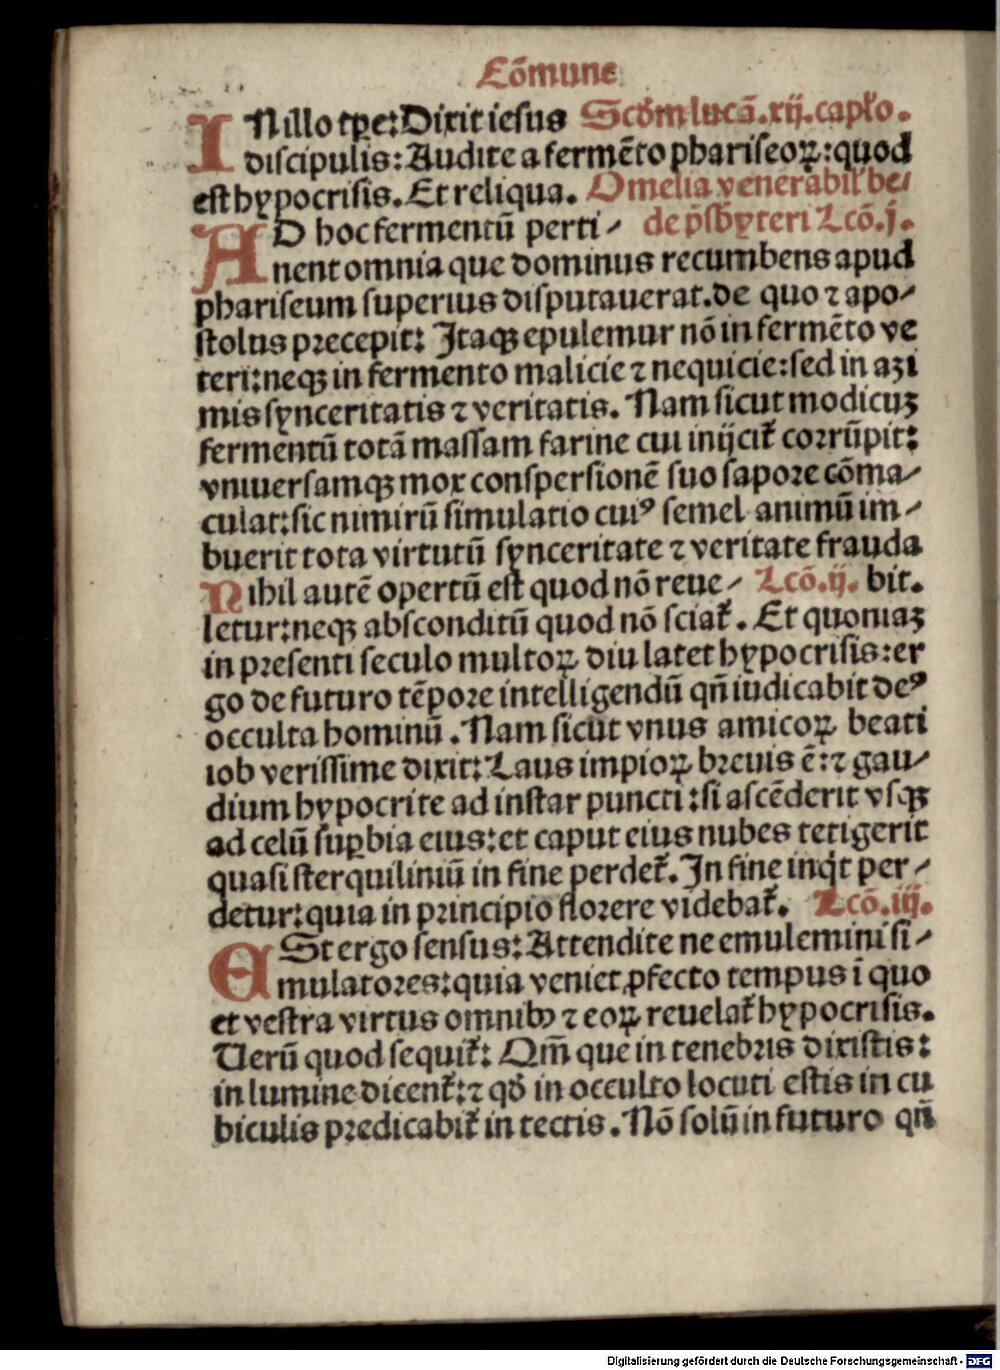 Cōmune
IN illo tp̄e: Dixit iesus Scd̄m lucā. xij. capľo.
discipulis: Audite a fermēto phariseoꝝ: quod
est hypocrisis. Et reliqua. Omelia venerabiľ be/
AD hoc fermentū perti/ de p̄sbyteri Lcō. j.
nent omnia que dominus recumbens apud
phariseum superius disputauerat. de quo ⁊ apo/
stolus precepit: Itaqꝫ epulemur nō in fermēto ve
teri: neqꝫ in fermento malicie ⁊ nequicie: sed in azi
mis synceritatis ⁊ veritatis. Nam sicut modicuꝫ
fermentū totā massam farine cui inijcit᷑ corrūpit:
vniuersamqꝫ mox conspersionē suo sapore cōma/
culat: sic nimirū simulatio cuiꝰ semel animū im/
buerit tota virtutū synceritate ⁊ veritate frauda
Nihil autē opertū est quod nō reue/ Lcō. ij. bit.
letur: neqꝫ absconditū quod nō sciat᷑. Et quoniaꝫ
in presenti seculo multoꝝ diu latet hypocrisis: er
go de futuro tēpore intelligendū qn̄ iudicabit deꝰ
occulta hominū. Nam sicut vnus amicoꝝ beati
iob verissime dixit: Laus impioꝝ breuis ē: ⁊ gau/
dium hypocrite ad instar puncti: si ascēderit vsqꝫ
ad celū suꝑbia eius: et caput eius nubes tetigerit
quasi sterquiliniū in fine perdet᷑. In fine inq̇t per/
detur: quia in principio florere videbat᷑. Lcō. iij.
ESt ergo sensus: Attendite ne emulemini si/
mulatores: quia veniet ꝓfecto tempus ī quo
et vestra virtus omnibꝰ ⁊ eoꝝ reuelat᷑ hypocrisis.
Verū quod sequit᷑: Qm̄ que in tenebris dixistis:
in lumine dicent᷑: ⁊ qď in occulto locuti estis in cu
biculis predicabit᷑ in tectis. Nō solū in futuro qn̄
Digitalisierung gefördert durch die Deutsche Forschungsgemeinschaft - DFG